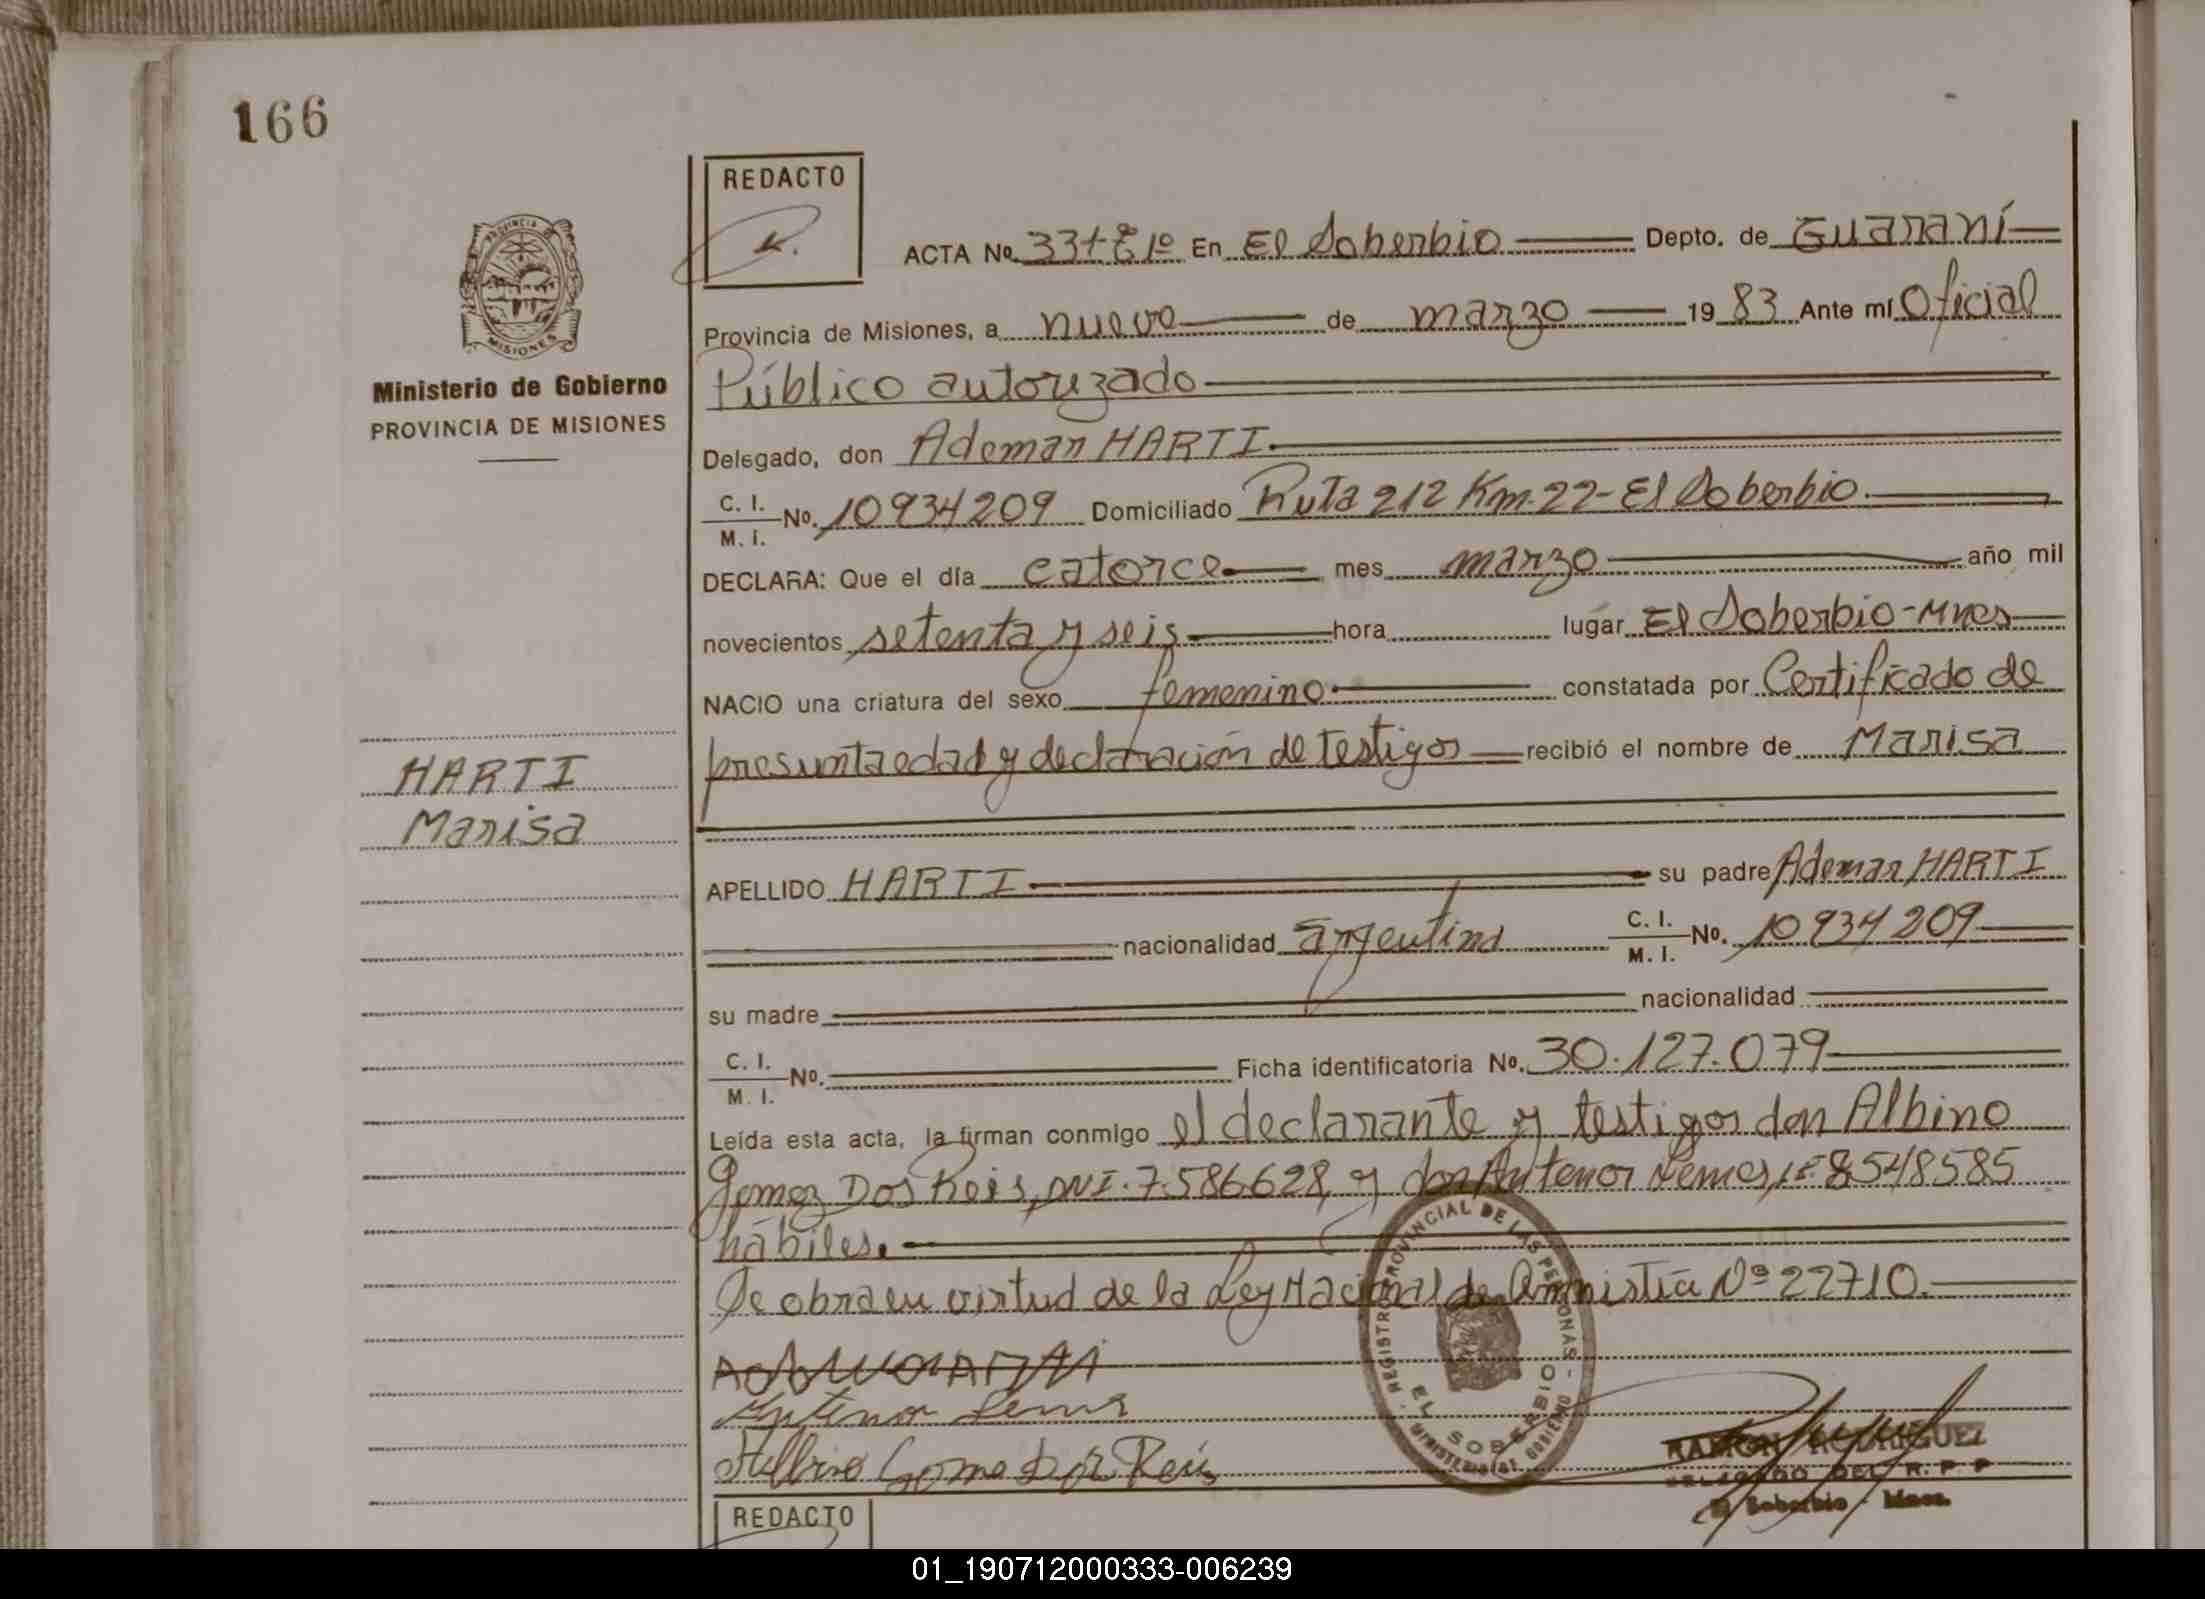 166
REDACTO
ACTA No. 331 E 1º En El Soberbio Depto. de Guaraní
PROVINCIA
MISIONES
Provincia de Misiones, a nueve de marzo 19 83 Ante mí Oficial
Ministerio de Gobierno
PROVINCIA DE MISIONES
Público autorizado
Delegado, don Ademar HARTI
C. I.
M. I. No. 10934209 Domiciliado Ruta 212 Km. 22 - El Soberbio
DECLARA: Que el día catorce mes marzo año mil
novecientos setenta y seis hora lugar El Soberbio - Mnes
NACIO una criatura del sexo femenino constatada por Certificado de
presunta edad y declaración de testigos recibió el nombre de Marisa
HARTI
Marisa
APELLIDO HARTI su padre Ademar HARTI
nacionalidad argentina C. I.
M. I. No. 10934209
su madre nacionalidad
C. I.
M. I. No. Ficha identificatoria No. 30.127.079
Leída esta acta, la firman conmigo el declarante y testigos don Albino
Gomez Dos Reis, DNI. 7.586628, y don Antenor Lemes, LE 8548585
hábiles.
Se obra en virtud de la Ley Nacional de Amnistía Nº 22710.
REGISTRO PROVINCIAL DE LAS PERSONAS
EL SOBERBIO
MINISTERIO DE GOBIERNO
Antenor Lemes
Albino Gome Dos Reis
RAMON RODRIGUEZ
DELEGADO DEL R. P. P
El Soberbio - Mnes.
REDACTO
01_190712000333-006239